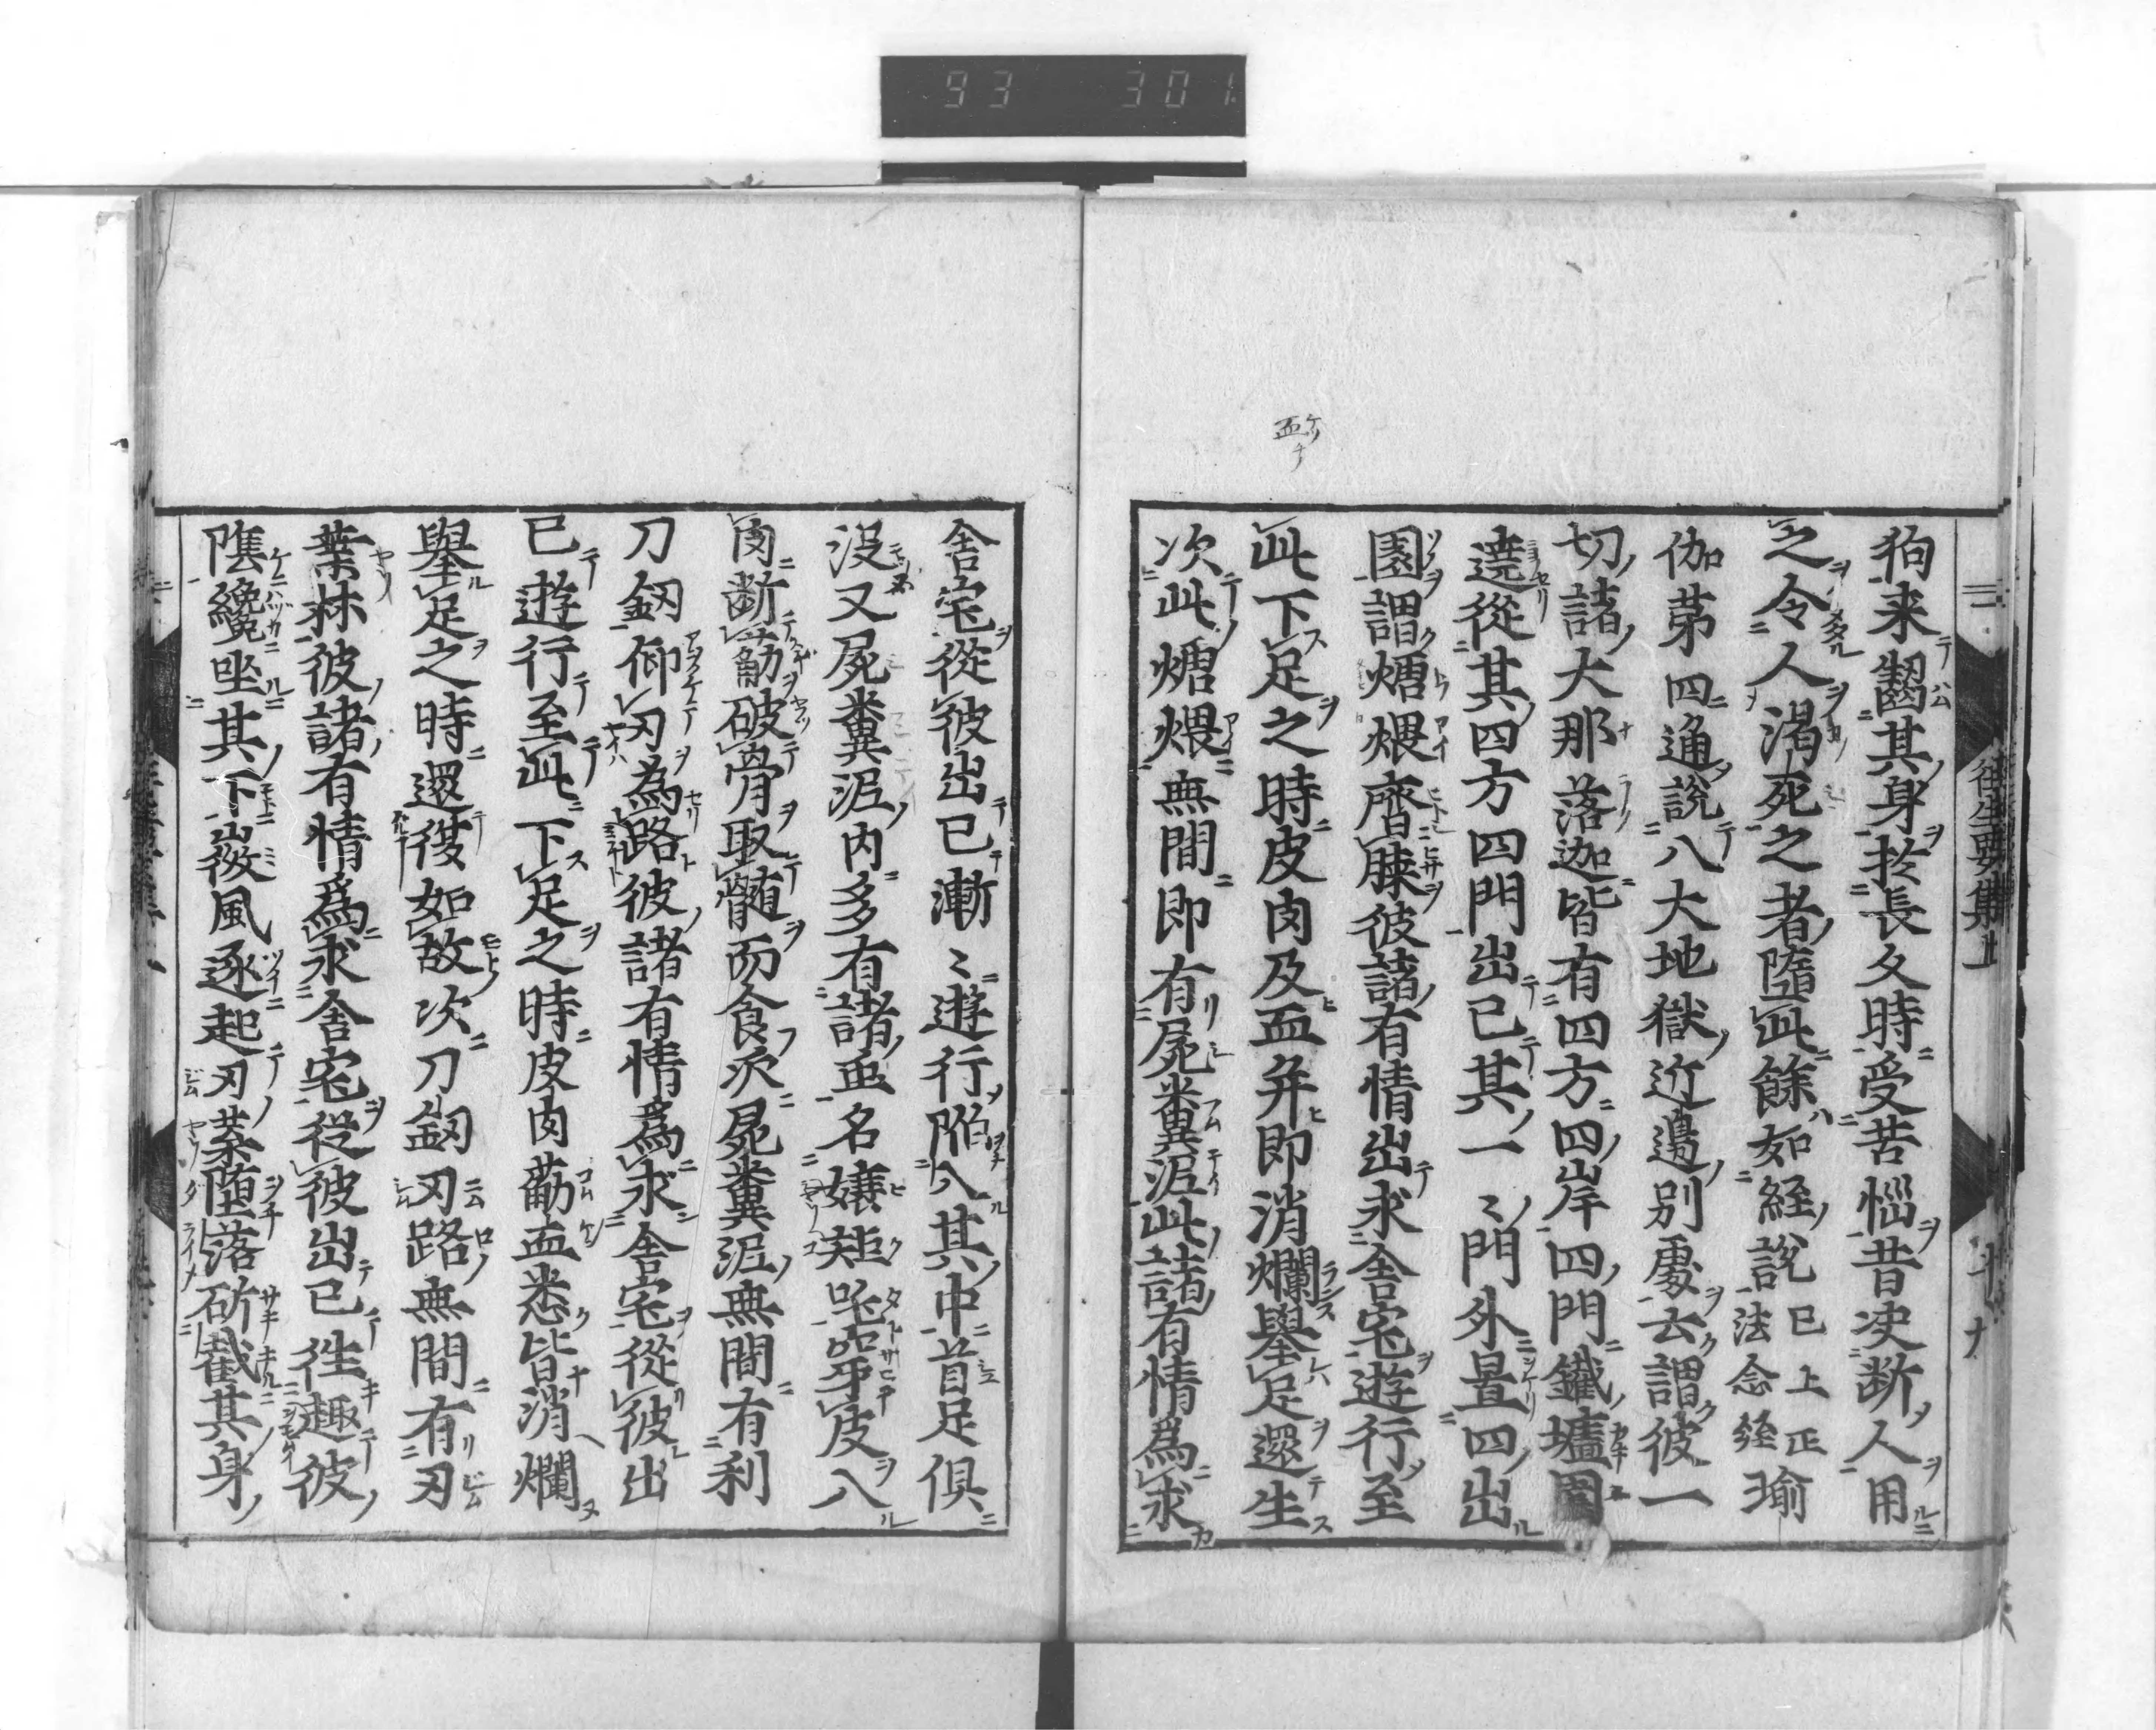 93 301
往生要集上
狗来齧其身於長久時受苦惱昔決断人用
之令人渴死之者墮此餘如經說已上正法念経瑜
伽苐四通說八大地獄近邊別處云謂彼一
切諸大那落迦皆有四方四岸四門鐵墻圍
遶從其四方四門出已其一〻門外畳四出
園謂煻煨齊膝彼諸有情出求舍宅遊行至
此下足之時皮肉及血并即消爛擧足還生
次此煻煨無間即有屍糞泥此諸有情爲求
舍宅從彼出已漸〻遊行陷入其中首足俱
没又屍糞泥内多有諸虫名孃矩吒穿皮入
肉断筋破骨取髄而食次屍糞泥無間有利
刀釼仰刃為路彼諸有情爲求舍宅從彼出
已遊行至此下足之時皮肉筋血悉皆消爛
擧足之時還復如故次刀釼刃路無間有刃
葉林彼諸有情爲求舍宅従彼出已往趣彼
隂纔坐其下微風遂起刃葉墮落斫截其身